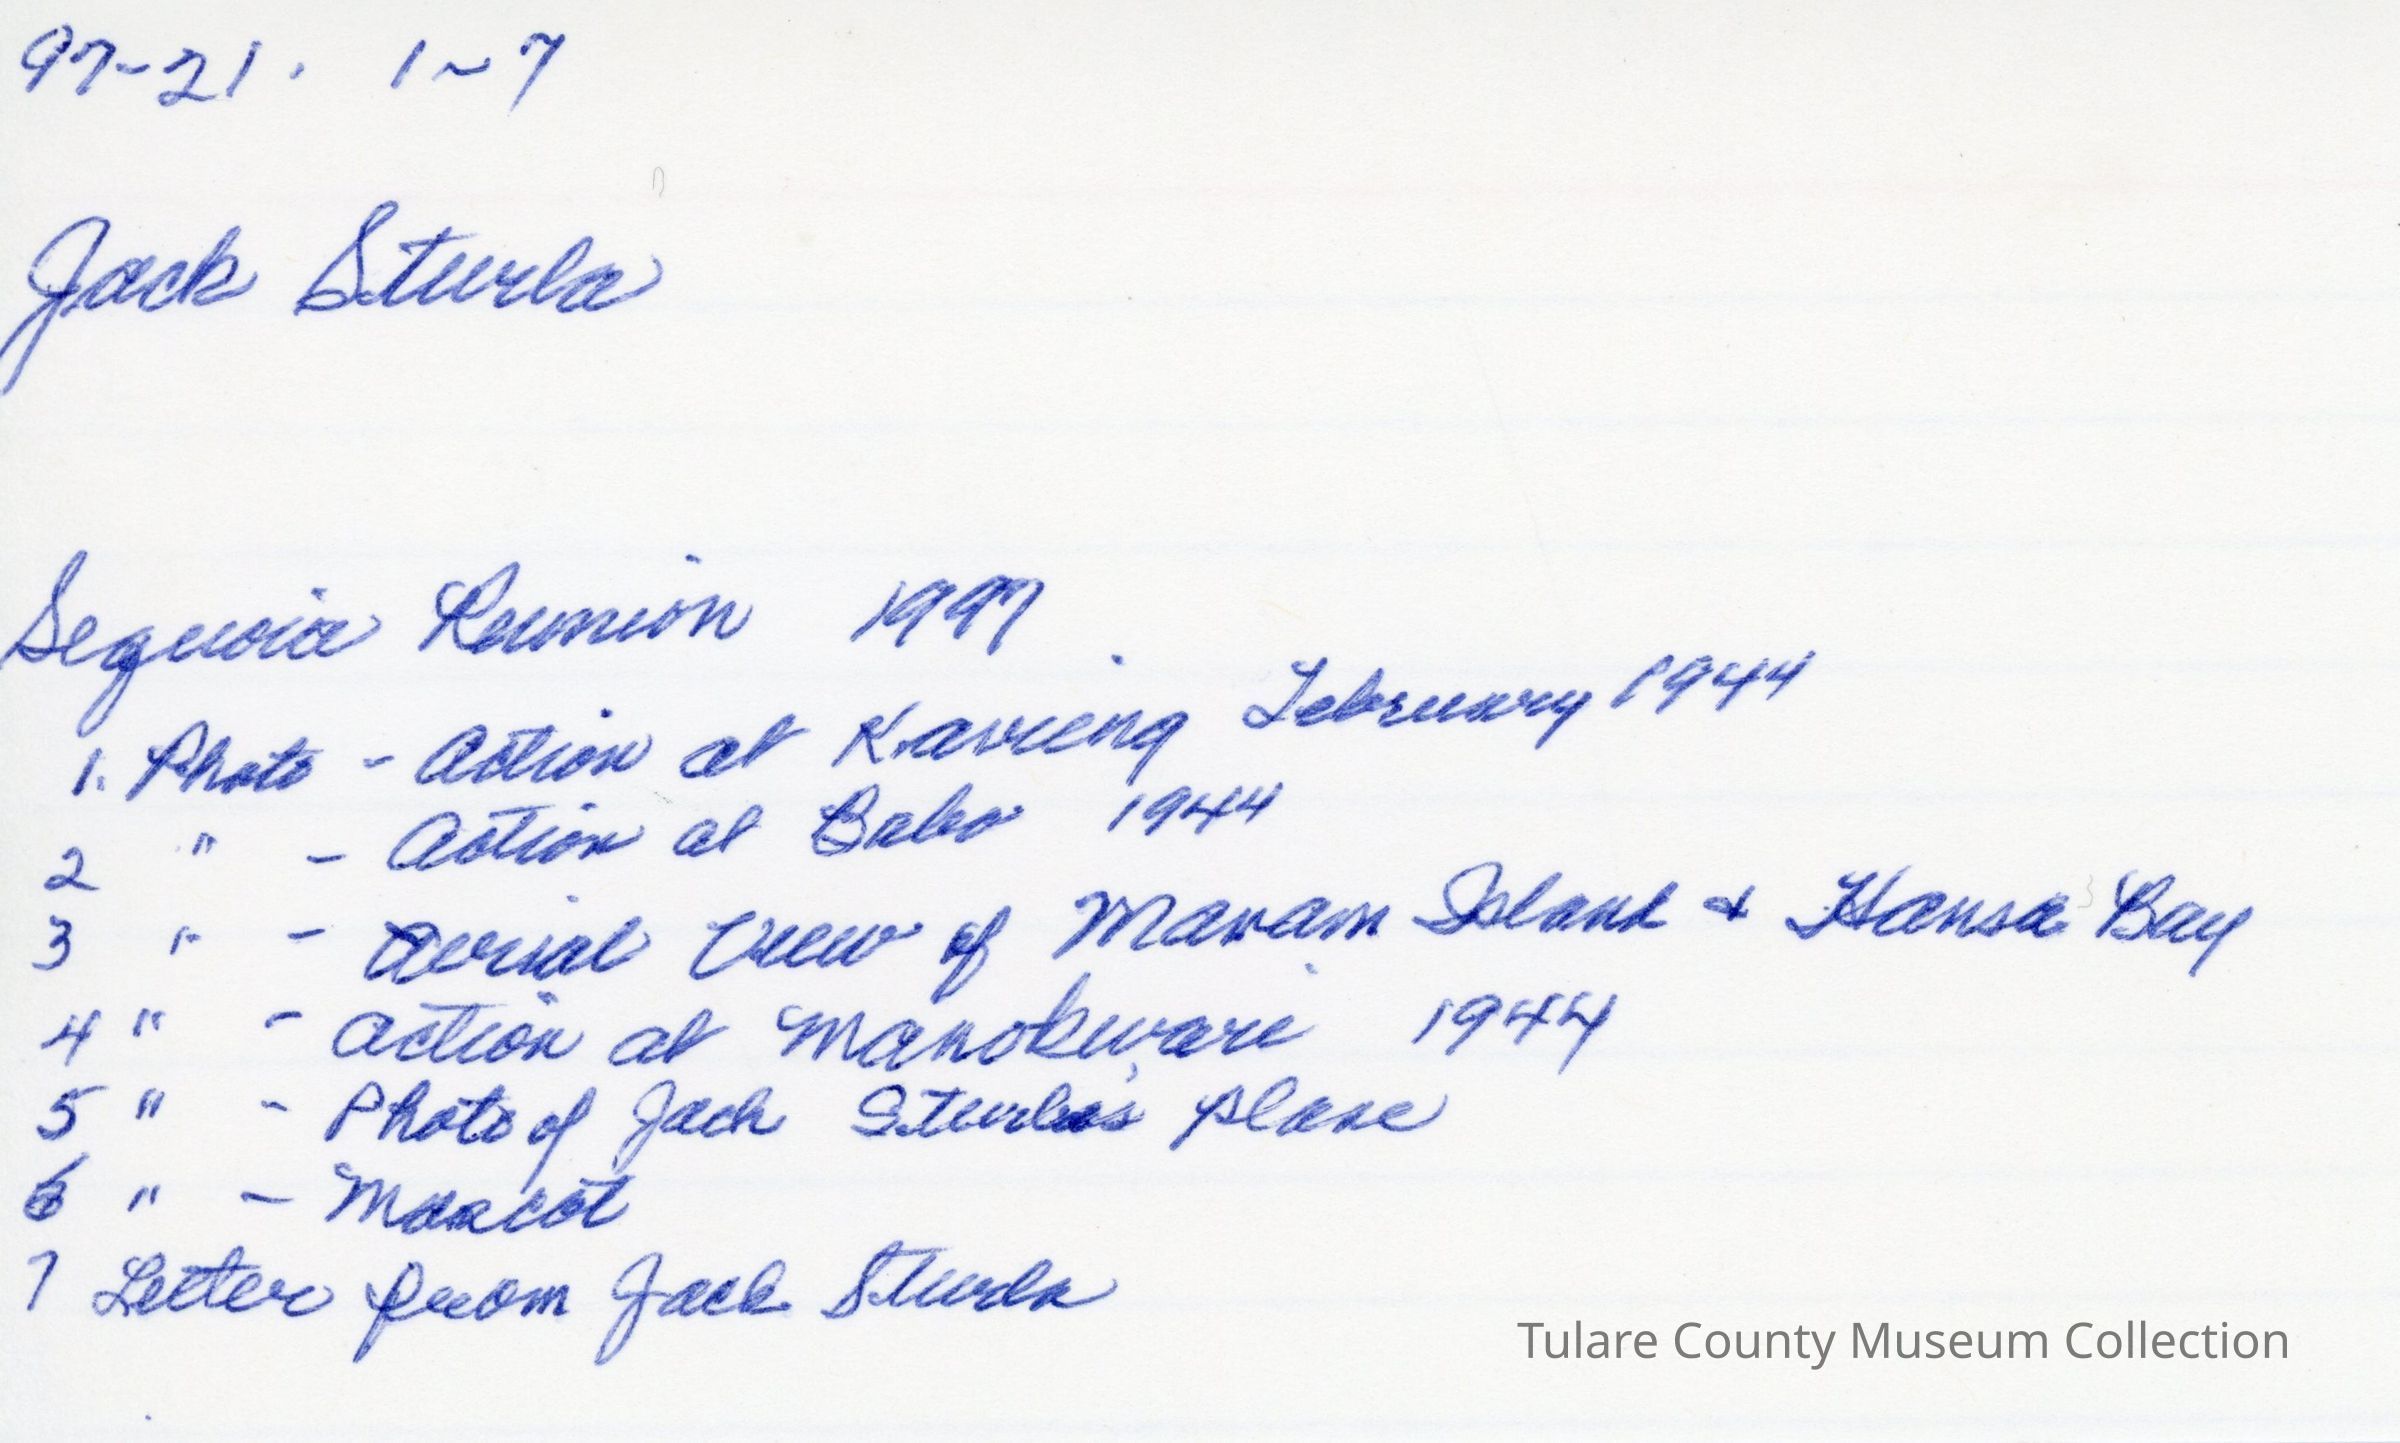 97-21. 1~7
Jack Sturla
Sequoia Reunion 1997
1. Photo - Action at Kavieng February 1944
2 " - Action at Babo 1944
3 " - Aerial View of Manam Island & Hansa Bay
4 " - Action at Manokwari 1944
5 " - Photo of Jack Sturla's plane
6 " - Mascot
7 Letter from Jack Sturla
Tulare County Museum Collection